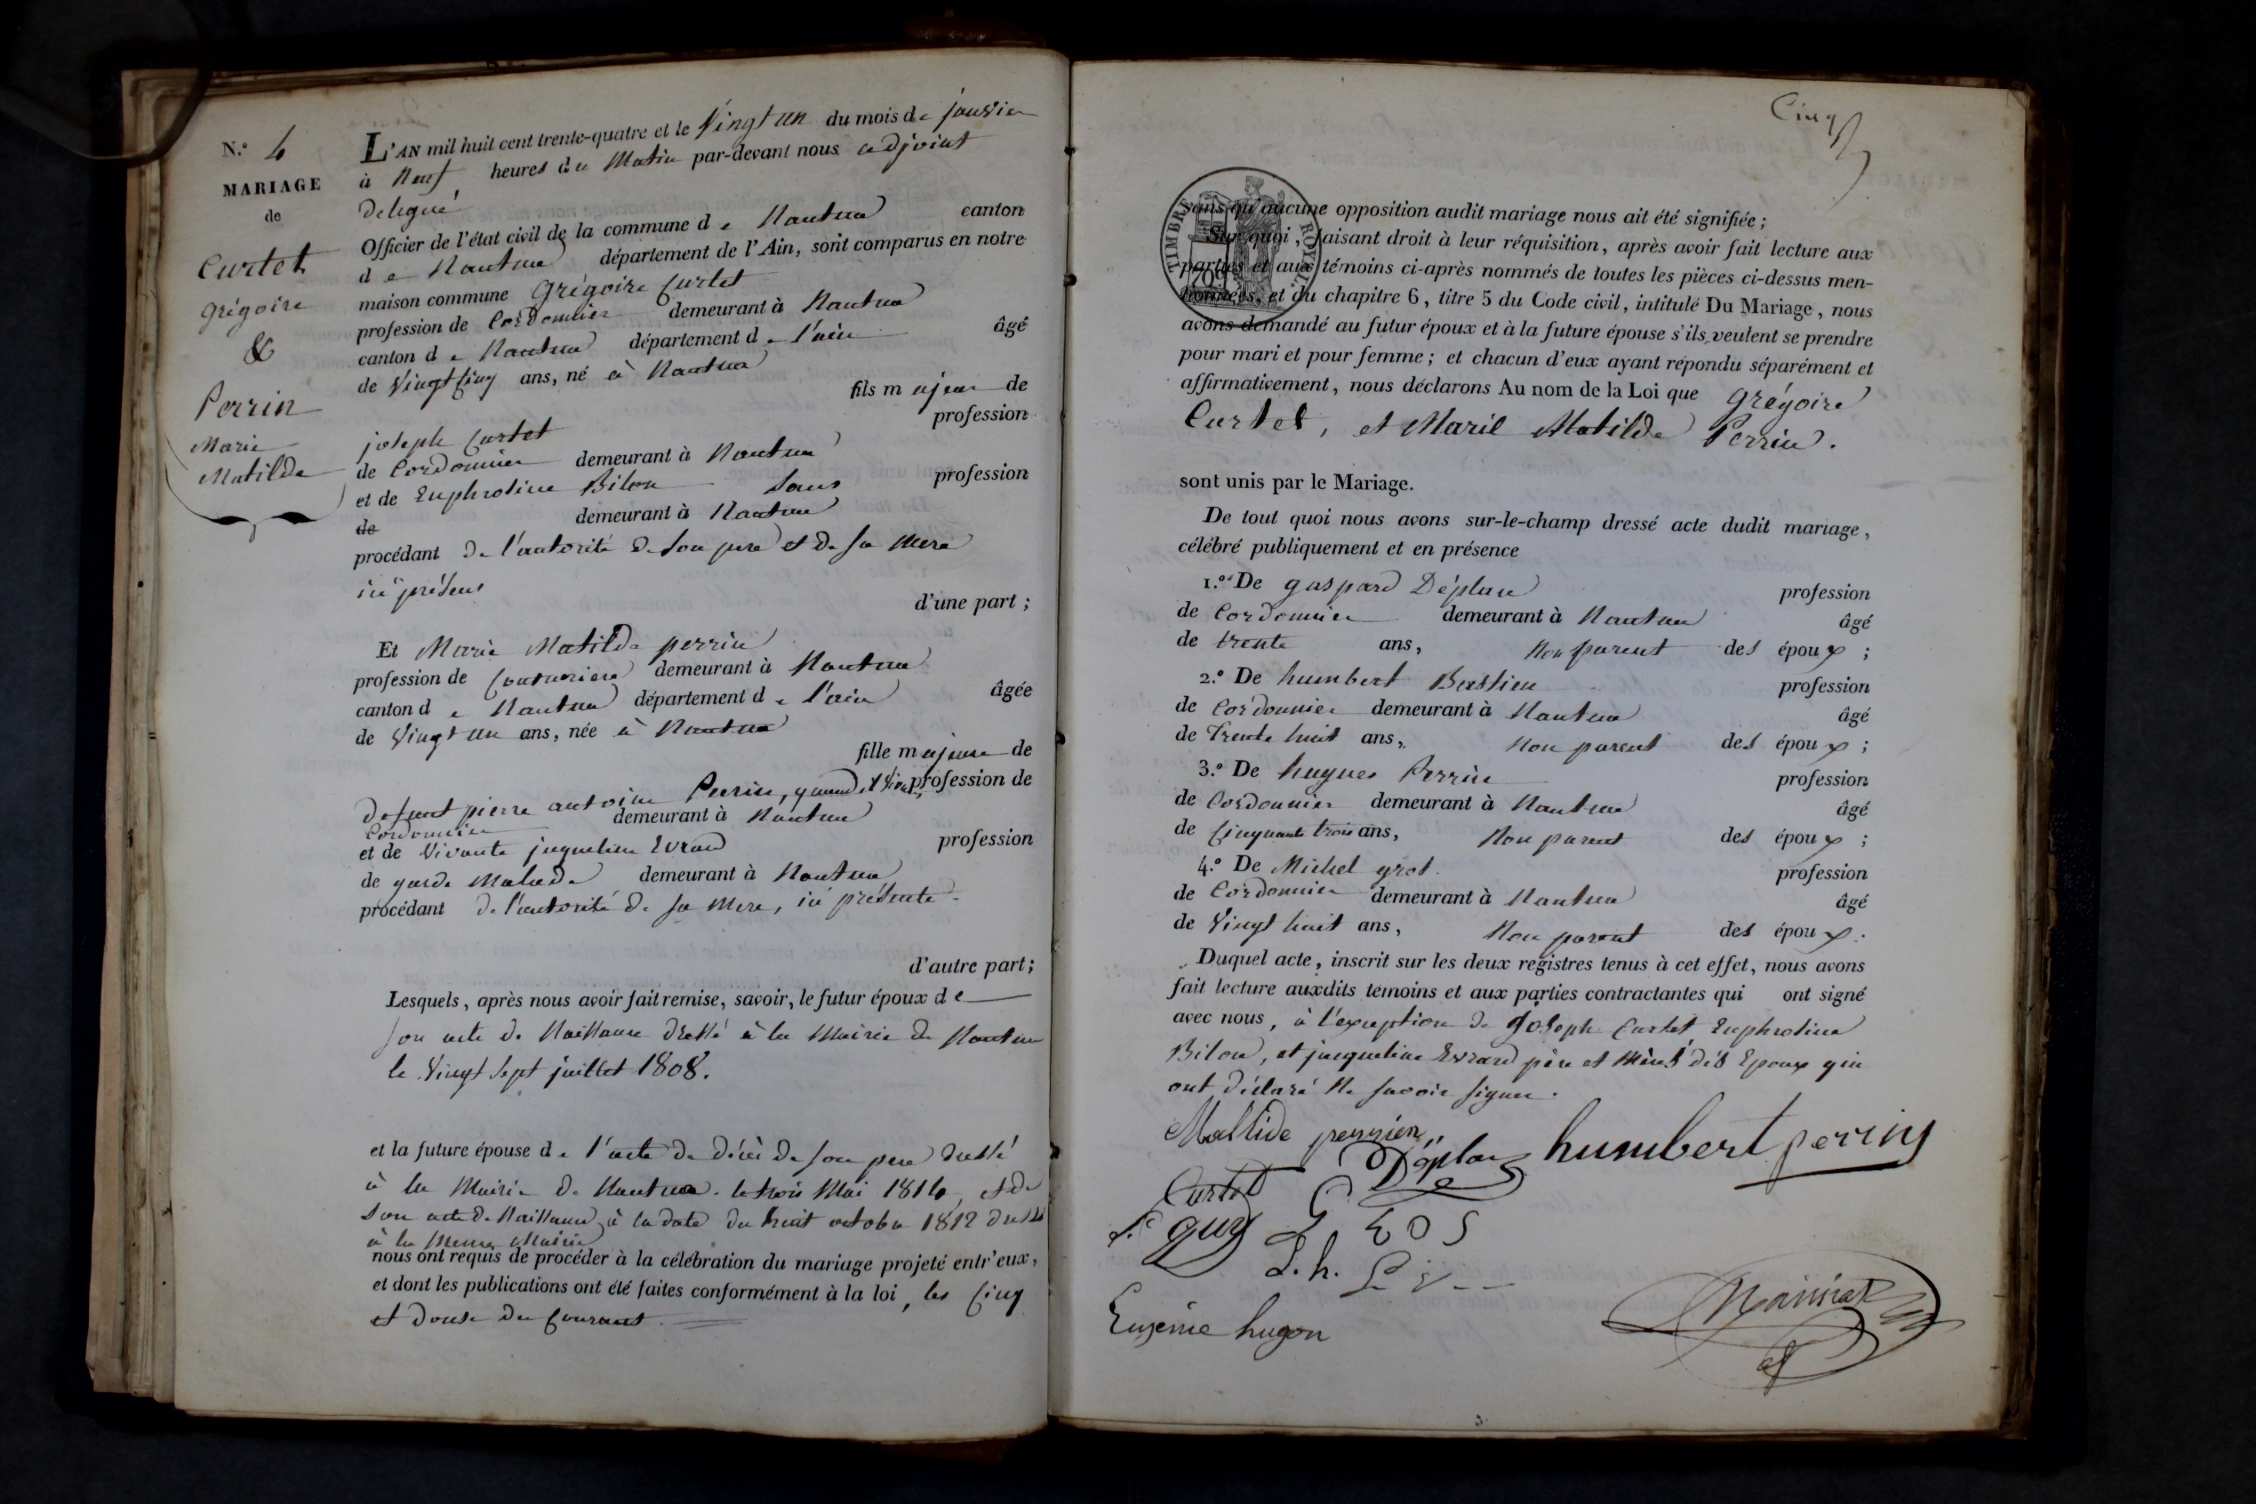 N.º 4
MARIAGE
de
Curtet
grégoire
&
Perrin
Marie
Matilde
L'AN mil huit cent trente-quatre et le Vingt un du mois de janvier
à Neuf heures du Matin par-devant nous adjoint
delegué
Officier de l'état civil de la commune de Nantua canton
de Nantua département de l'Ain, sont comparus en notre
maison commune Grégoire Curtet
profession de Cordonnier demeurant à Nantua
canton de Nantua département de l'ain âgé
de Vingt Cinq ans, né à Nantua
fils majeur de
profession
joseph Curtet
de Cordonnier demeurant à Nantua
et de Euphrosine Bilon Sans profession
de demeurant à Nantua
procédant de l'autorité de son pere et de sa Mere
ici présens
d'une part ;
Et Marie Matilde perrin
profession de Couturiere demeurant à Nantua
canton de Nantua département de l'ain âgée
de Vingt un ans, née à Nantua
fille majeure de
defunt pierre antoine Perrin, quand Vivait, profession de
Cordonnier demeurant à Nantua
et de Vivante jaqueline Evrard profession
de garde Malade demeurant à Nantua
procédant de l'autorité de sa Mere, ici présente
d'autre part ;
Lesquels, après nous avoir fait remise, savoir, le futur époux de
son acte de Naissance dressé à la Mairie de Nantua
le Vingt Sept juillet 1808.
et la future épouse de l'acte de décès de son pere dressé
à la Mairie de Nantua le trois Mai 1814, et de
son acte de Naissance à la date du huit octobre 1812 dressé
à la Meme Mairie
nous ont requis de procéder à la célébration du mariage projeté entr'eux,
et dont les publications ont été faites conformément à la loi, les Cinq
et Douze du Courant
Cinq
TIMBRE ROYAL
sans qu'aucune opposition audit mariage nous ait été signifiée ;
Sur quoi, faisant droit à leur réquisition, après avoir fait lecture aux
parties et aux témoins ci-après nommés de toutes les pièces ci-dessus men-
tionnées, et du chapitre 6, titre 5 du Code civil, intitulé Du Mariage, nous
avons demandé au futur époux et à la future épouse s'ils veulent se prendre
pour mari et pour femme ; et chacun d'eux ayant répondu séparément et
affirmativement, nous déclarons Au nom de la Loi que grégoire
Curtet, et Marie Matilde Perrin.
sont unis par le Mariage.
De tout quoi nous avons sur-le-champ dressé acte dudit mariage,
célébré publiquement et en présence
1.º De gaspard Déplan profession
de Cordonnier demeurant à Nantua âgé
de trente ans, Non parent des époux ;
2.º De humbert Bastien profession
de Cordonnier demeurant à Nantua âgé
de Trente huit ans, Non parent des époux ;
3.º De hugues Perrin profession
de Cordonnier demeurant à Nantua âgé
de Cinquante trois ans, Non parent des époux ;
4.º De Michel grot profession
de Cordonnier demeurant à Nantua âgé
de Vingt huit ans, Non parent des époux.
Duquel acte, inscrit sur les deux registres tenus à cet effet, nous avons
fait lecture auxdits temoins et aux parties contractantes qui ont signé
avec nous, à l'exception de Joseph Curtet Euphrosine
Bilon, et jacqueline Evrard père et Mères des Epoux qui
ont déclaré Ne savoir signer.
Maltide perrien
Déplan humbert perrin
Curtet
Eugénie hugon